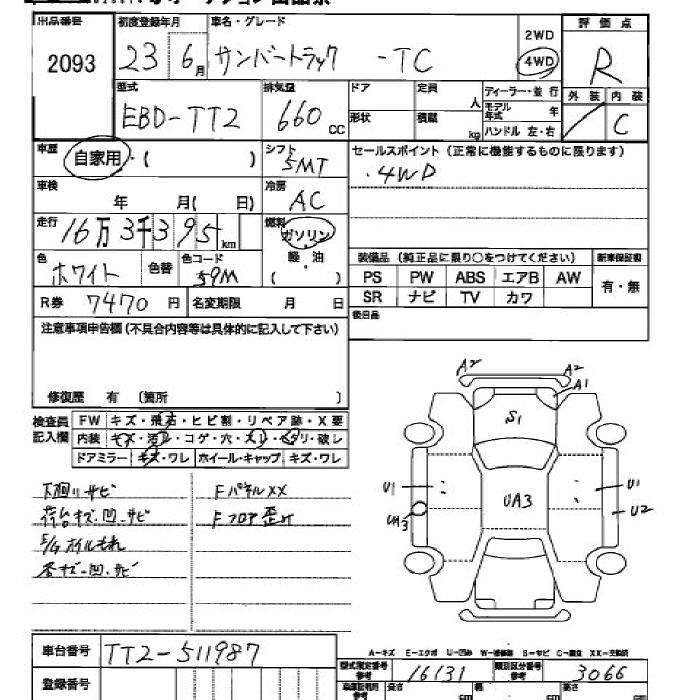 出品番号 初度登録年月 車名・グレード 2WD 評価点
2093 23 6月 サンバートラック -TC 4WD R
型式 排気量 ドア 定員 人 ディーラー・並行 外装 内装
EBD-TT2 660cc 形状 積載 kg モデル年式 年 ハンドル 左・右 C
車歴 自家用・( ) シフト 5MT セールスポイント (正常に機能するものに限ります)
・4WD
車検 年 月( 日) 冷房 AC
走行 16万3千395km 燃料 ガソリン
軽・油
( )
色 ホワイト 色替 色コード 59M
装備品 (純正品に限り○をつけてください) 新車保証書
PS PW ABS エアB AW 有・無
SR ナビ TV カワ
R券 7470円 名変期限 月 日
後日品
注意事項申告欄(不具合内容等は具体的に記入して下さい)
修復歴 有 〔箇所 〕
検査員記入欄 FW キズ・飛石・ヒビ割・リペア跡・X要
内装 キズ・汚レ・コゲ・穴・スレ・ヘタリ・破レ
ドアミラー キズ・ワレ ホイール・キャップ キズ・ワレ
下廻りサビ FパネルXX
荷台キズ・凹・サビ Fフロア歪み
E/Gオイルもれ
各キズ・凹・サビ
A2 A2
A1
S1
U1 UA3 U1
UA3 U2
A-キズ E-エクボ U-凹み W-補修跡 S-サビ C-腐食 XX-交換済
車台番号 TT2-511987
型式指定番号 参考 16131 類別区分番号 参考 3066
登録番号
長さ cm 幅 cm 高さ cm